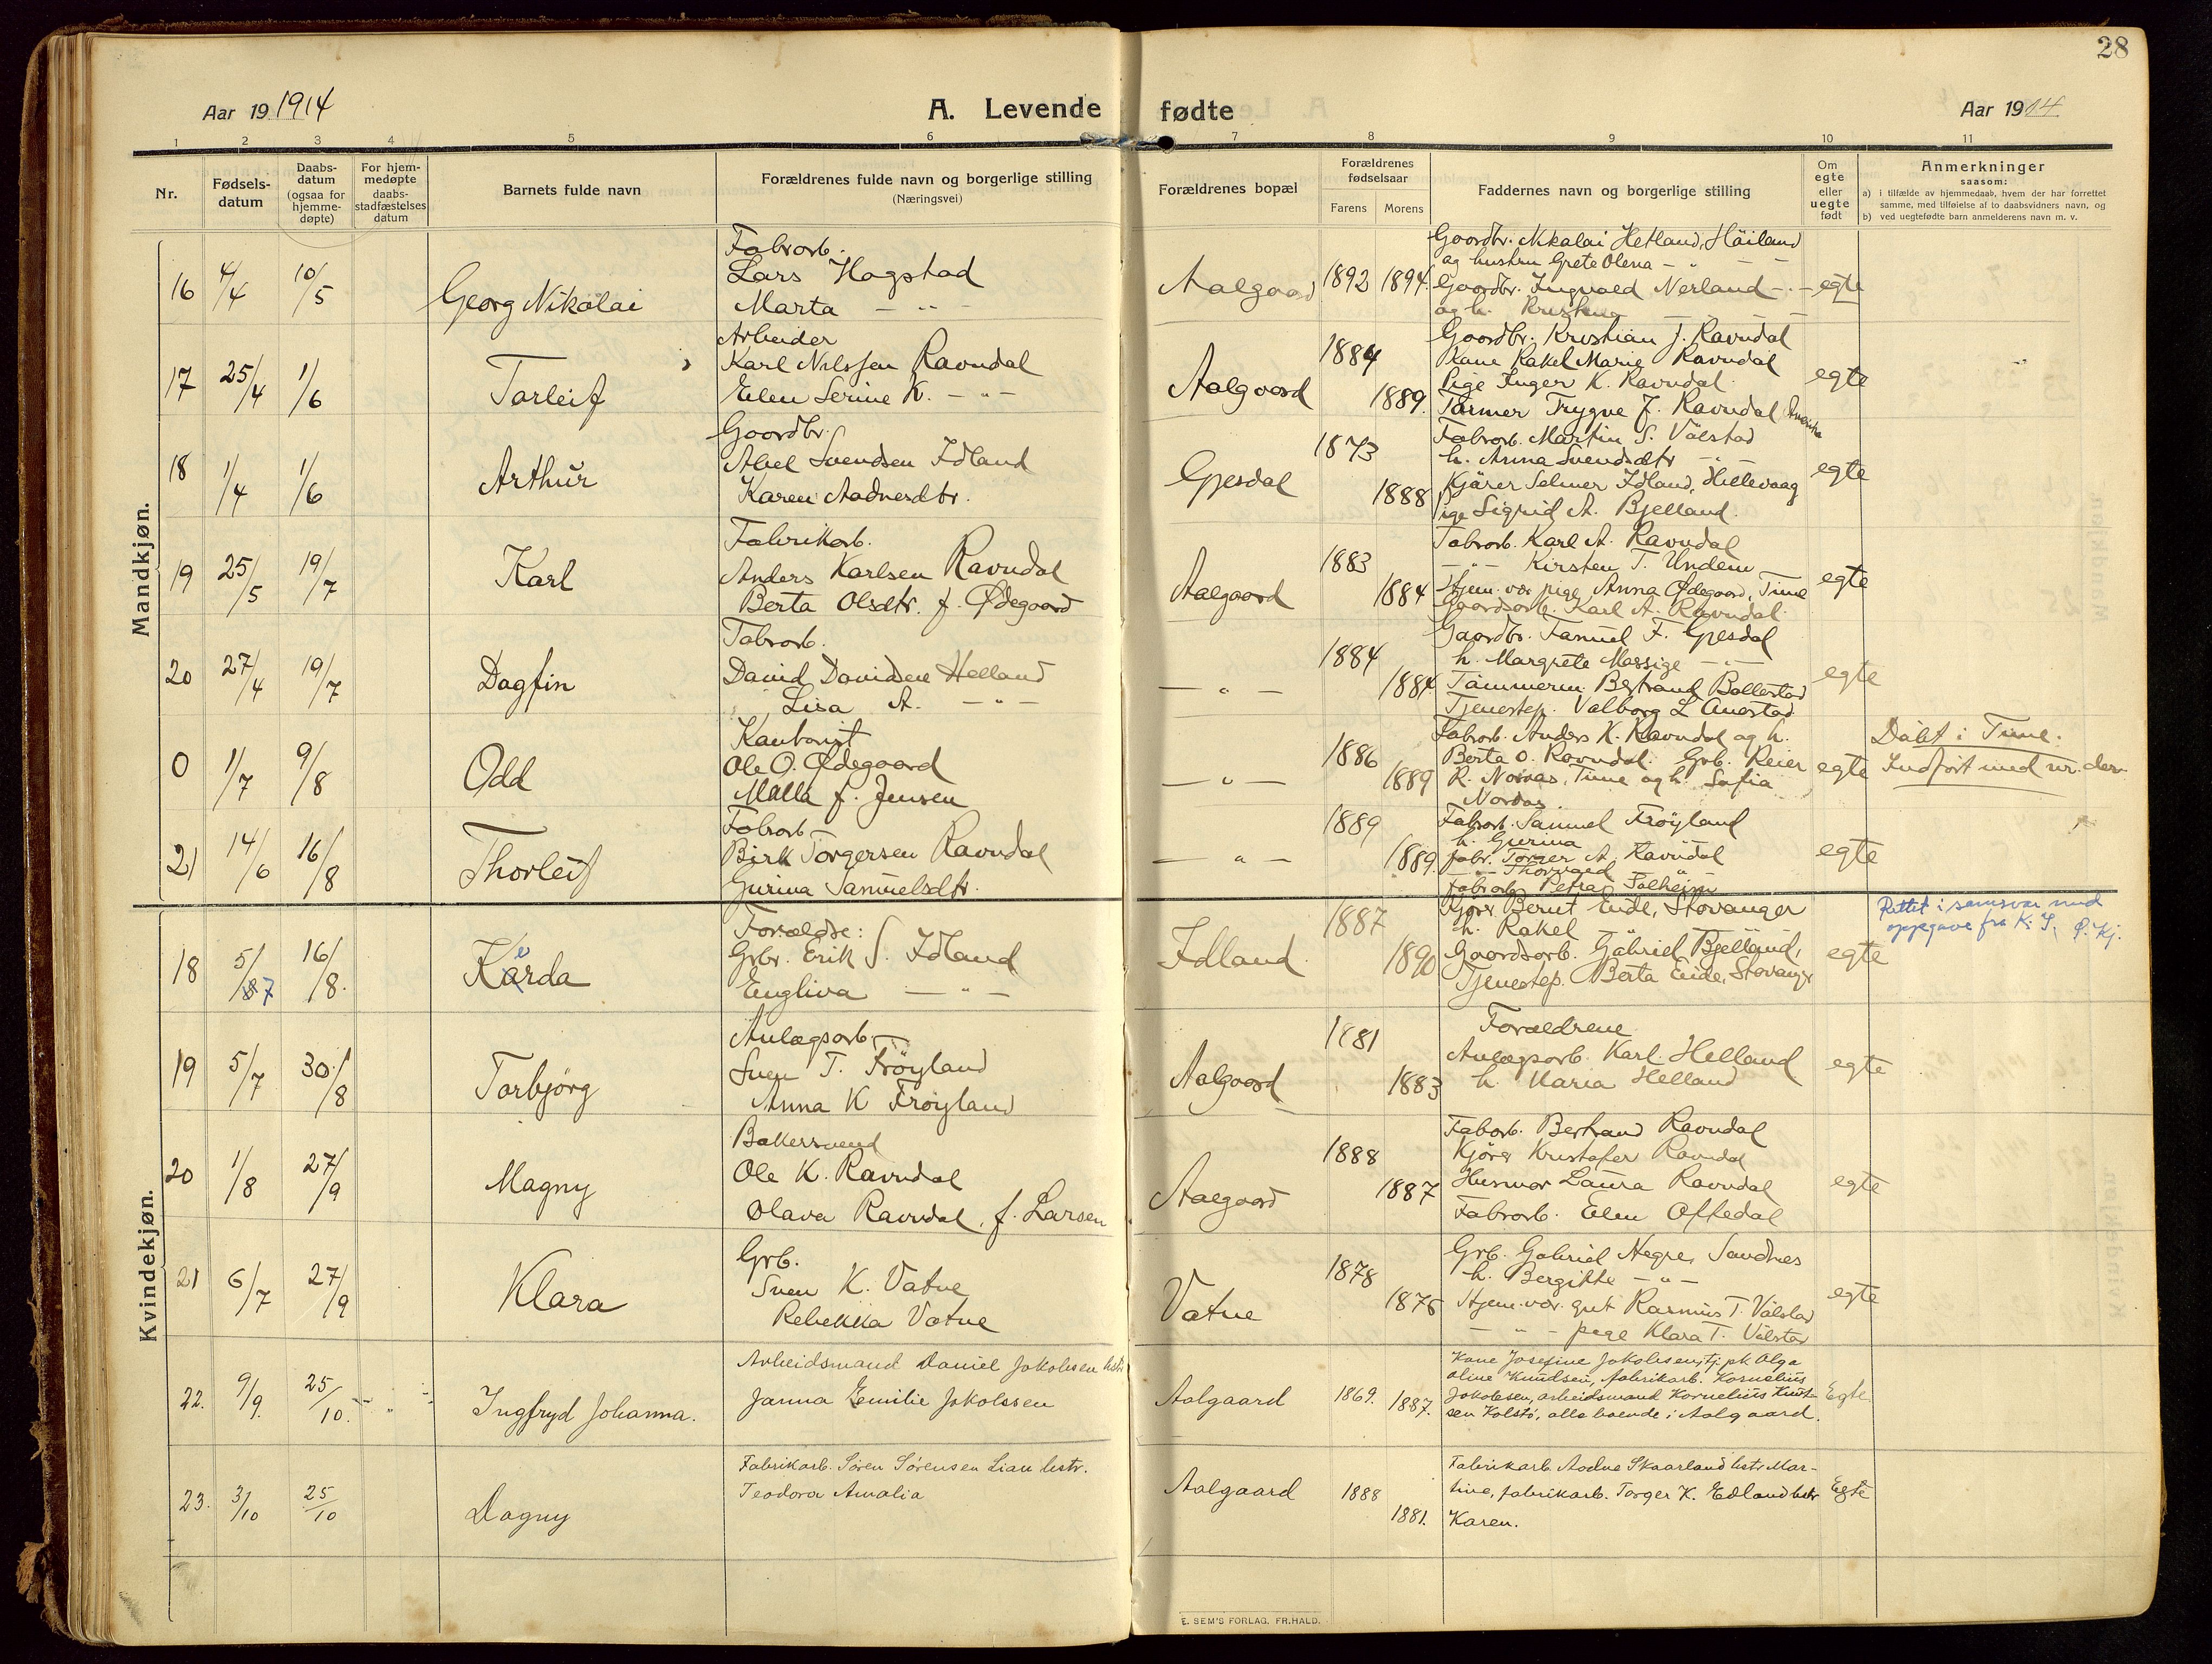 28
Aar 19 1914
A. Levende fødte
Aar 1914
1 2 3 4 5 6 7 8 9 10 11
Nr.
Fødsels-
datum
Daabs-
datum
(ogsaa for
hjemme-
døpte)
For hjem-
medøpte
daabs-
stadfæstelses
datum
Barnets fulde navn
Forældrenes fulde navn og borgerlige stilling
(Næringsvei)
Forældrenes bopæl
Forældrenes
fødselsaar
Farens Morens
Faddernes navn og borgerlige stilling
Om
egte
eller
uegte
født
Anmerkninger
saasom:
a) i tilfælde av hjemmedaab, hvem der har forrettet
samme, med tilføielse af to daabsvidners navn, og
b) ved uegtefødte barn anmelderens navn m. v.
Mandkjøn.
16 4/4 10/5
Georg Nikolai
Fabrarb.
Lars Hagstad
Marta — " —
Aalgaard
1892 1894
Gaardbr. Nikolai Hetland, Høiland
og hustru Grete Olena — " —
Gaardbr. Ingvald Nerland — " —
og h. Kristina
egte
17 25/4 1/6
Torleif
Arbeider
Karl Nilssen Ravndal
Elen Serine K. — " —
Aalgaard
1884
1889.
Gaardbr. Kristian J. Ravndal
Kone Rakel Marie Ravndal
Pige Inger K. Ravndal
Farmer Trygve J. Ravndal Amerika
egte
18 1/4 1/6
Arthur
Gaardbr.
Abel Svendsen Idland
Karen Aadnesdtr.
Gjesdal
1873
1888
Fabrarb. Martin S. Vølstad
h. Anna Svendsdtr — " —
Kjører Selmer Idland, Hillevaag
Pige Sigrid A. Bjelland.
egte
19 25/5 19/7
Karl
Fabrikarb.
Anders Karlsen Ravndal
Berta Olsdtr. f. Ødegaard
Aalgaard
1883
1884
Fabrarb. Karl A. Ravndal
— " — Kirsten T. Undem
Hjem.vær. pige Anna Ødegaard, Time
Gaardsarb. Karl A. Ravndal.
egte
20 27/4 19/7
Dagfin
Fabrarb.
David Davidsen Helland
" Lisa A. — " —
— " —
1884
1884
Gaardbr. Samuel F. Gjesdal
h. Margrete Massige — " —
Tømmerm. Bertrand Bollestad
Tjenestep. Valborg L Auestad
egte
0 1/7 9/8
Odd
Kantorist
Ole O. Ødegaard
Malla f. Jensen
— " —
1886
1889
Fabrarb. Anders K. Ravndal og h.
Berta O. Ravndal. Grb. Reier
R. Norøas, Time og h. Sofia
Nordas.
egte
Døbt i Time.
Indført med nr. der.
21 14/6 16/8
Thorleif
Fabrarb.
Birk Torgersen Ravndal
Gurina Samuelsdtr.
— " —
1889
1889.
Fabrarb. Samuel Frøyland
h. Gurina
Fabr. Torger A. Ravndal
— " — Thorvald "
Fabrarb. Petra Solheim
egte
Kvindekjøn.
18 5/7 16/8.
Kårda
Forældre:
Grbr. Erik S. Idland
Engliva — " —
Idland.
1887
1890
Kjører Bernt Eide, Stavanger
h. Rakel
Gaardsarb. Gabriel Bjelland,
Tjenestep. Berta Eide, Stavanger
egte
Rettet i samsvar med
oppgave fra K. S. Ø. Kj.
19 5/7 30/8
Torbjørg
Anlægsarb.
Sven T. Frøyland
Anna K Frøyland
Aalgaard
1881
1883
Forældrene
Anlægsarb. Karl Helland
h. Maria Helland
egte
20 1/8 27/9
Magny
Bakersvend
Ole K. Ravndal
Olava Ravndal, f. Larsen
Aalgaard
1888
1887
Fabarb. Bertrand Ravndal
Kjører Kristofer Ravndal
Husmor Laura Ravndal
Fabrarb. Elen Oftedal
egte
21 6/7 27/9
Klara
Grb.
Sven K. Vatne
Rebekka Vatne
Vatne
1878
1876
Grb. Gabriel Hegre, Sandnes
h. Bergitte — " —
Hjem.vær. gut Rasmus T. Vølstad
— " — pige Klara T. Vølstad
egte
22. 9/9. 25/10. — " —
Ingfryd Johanna.
Arbeidsmand Daniel Jakobsen hstr
Janna Emilie Jakobsen
Aalgaard
1869. 1887.
Kone Josefine Jakobsen, tj. pk. Olga
Oline Knudsen, fabrikarb. Kornelius
Jakobsen, arbeidsmand Kornelius Knut-
sen Kolstø, alle boende i Aalgaard.
Egte
23. 3/10 25/10
Dagny
Fabrikarb. Søren Sørensen Lian hstr.
Teodora Amalia
Aalgaard
1888
1881.
Fabrikarb. Aadne Skaarland hstr Mar-
tine, fabrikarb. Torger K. Edland hstr
Karen.
Egte
E. SEM'S FORLAG. FR.HALD.